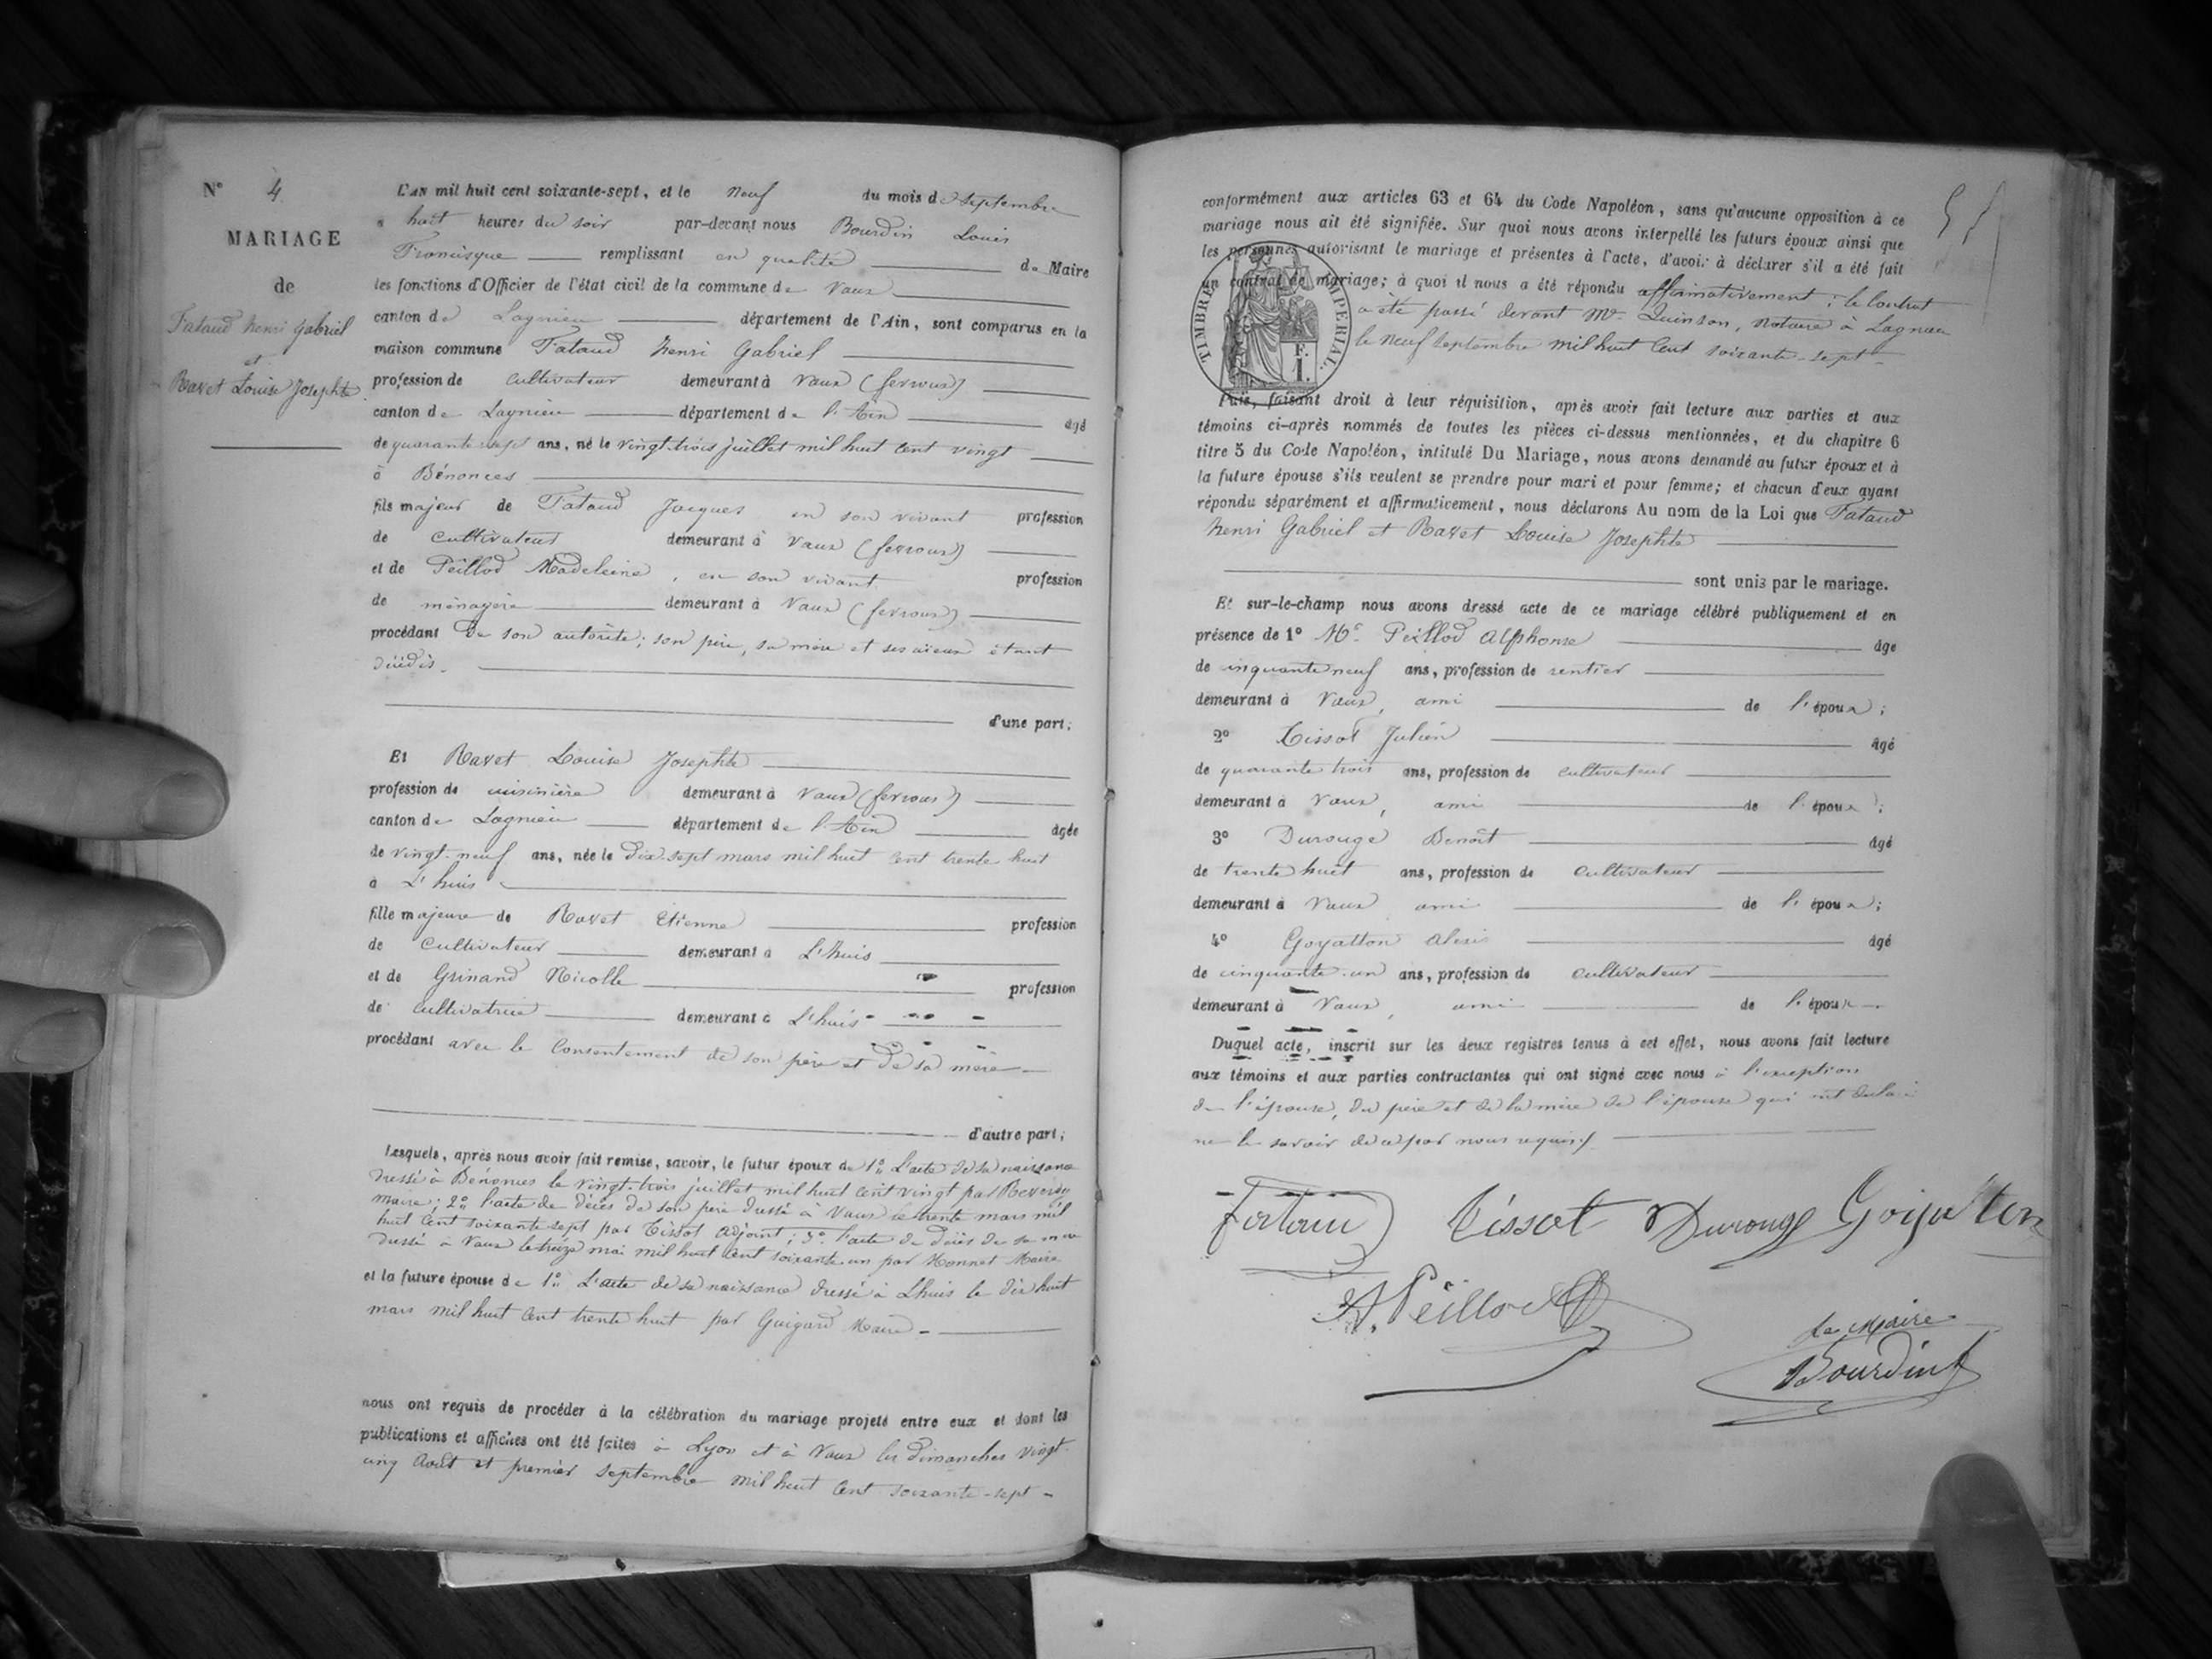 N° 4
MARIAGE
de
Fataud henri Gabriel
et
Ravet Louise Josephte
L'AN mil huit cent soixante-sept, et le neuf du mois de septembre
à huit heures du soir par-devant nous Bourdin Louis
Francisque remplissant en qualité de Maire
les fonctions d'Officier de l'état civil de la commune de Vaux
canton de Lagnieu département de l'Ain, sont comparus en la
maison commune Fataud henri Gabriel
profession de cultivateur demeurant à Vaux (fervoux)
canton de Lagnieu département de l'Ain âgé
de quarante sept ans, né le vingt trois juillet mil huit cent vingt
à Bénonces
fils majeur de Fataud Jacques en son vivant profession
de cultivateur demeurant à Vaux (fervoux)
et de Peillod Madeleine, en son vivant profession
de ménagère demeurant à Vaux (fervoux)
procédant de son autorité; son père, sa mère et ses aïeux étant
décédés.
d'une part;
Et Ravet Louise Josephte
profession de cuisinière demeurant à Vaux (fervoux)
canton de Lagnieu département de l'Ain âgée
de vingt-neuf ans, née le dix-sept mars mil huit cent trente huit
à L'huis
fille majeure de Ravet Etienne profession
de cultivateur demeurant à L'huis
et de Grinand Nicolle profession
de cultivatrice demeurant à L'huis
procédant avec le consentement de son père et de sa mère
d'autre part;
Lesquels, après nous avoir fait remise, savoir, le futur époux de 1° L'acte de sa naissance
dressé à Bénonces le vingt-trois juillet mil huit cent vingt par Reverdy
maire; 2° l'acte de décès de son père dressé à Vaux le trente mars mil
huit cent soixante sept par Tissot adjoint; 3° l'acte de décès de sa mère
dressé à Vaux le treize mai mil huit cent soixante un par Monnet Maire
et la future épouse de 1° L'acte de sa naissance dressé à Lhuis le dix huit
mars mil huit cent trente huit par Guigard Maire
nous ont requis de procéder à la célébration du mariage projeté entre eux et dont les
publications et affiches ont été faites à Lyon et à Vaux les dimanches vingt
cinq Août et premier septembre mil huit cent soixante-sept
conformément aux articles 63 et 64 du Code Napoléon, sans qu'aucune opposition à ce
mariage nous ait été signifiée. Sur quoi nous avons interpellé les futurs époux ainsi que
les personnes autorisant le mariage et présentes à l'acte, d'avoir à déclarer s'il a été fait
un contrat de mariage; à quoi il nous a été répondu affirmativement; le contrat
a été passé devant Me Quinson, notaire à Lagnieu
le neuf septembre mil huit cent soixante-sept
TIMBRE IMPERIAL.
F.
1.
Puis, faisant droit à leur réquisition, après avoir fait lecture aux parties et aux
témoins ci-après nommés de toutes les pièces ci-dessus mentionnées, et du chapitre 6
titre 5 du Code Napoléon, intitulé Du Mariage, nous avons demandé au futur époux et à
la future épouse s'ils veulent se prendre pour mari et pour femme; et chacun d'eux ayant
répondu séparément et affirmativement, nous déclarons Au nom de la Loi que Fataud
henri Gabriel et Ravet Louise Josephte
sont unis par le mariage.
Et sur-le-champ nous avons dressé acte de ce mariage célébré publiquement et en
présence de 1° Mr. Peillod Alphonse âgé
de cinquante neuf ans, profession de rentier
demeurant à Vaux, ami de l'époux;
2° Tissot Julien âgé
de quarante trois ans, profession de cultivateur
demeurant à Vaux, ami de l'époux;
3° Durouge Benoît âgé
de trente huit ans, profession de cultivateur
demeurant à Vaux ami de l'époux;
4° Goyatton Alexis âgé
de cinquante-un ans, profession de cultivateur
demeurant à Vaux, ami de l'époux
Duquel acte, inscrit sur les deux registres tenus à cet effet, nous avons fait lecture
aux témoins et aux parties contractantes qui ont signé avec nous à l'exception
de l'épouse, du père et de la mère de l'épouse qui ont déclaré
ne le savoir de ce par nous requis
Fataud Tissot Durouge Goyatton
A. Peillod
Le Maire
Bourdin